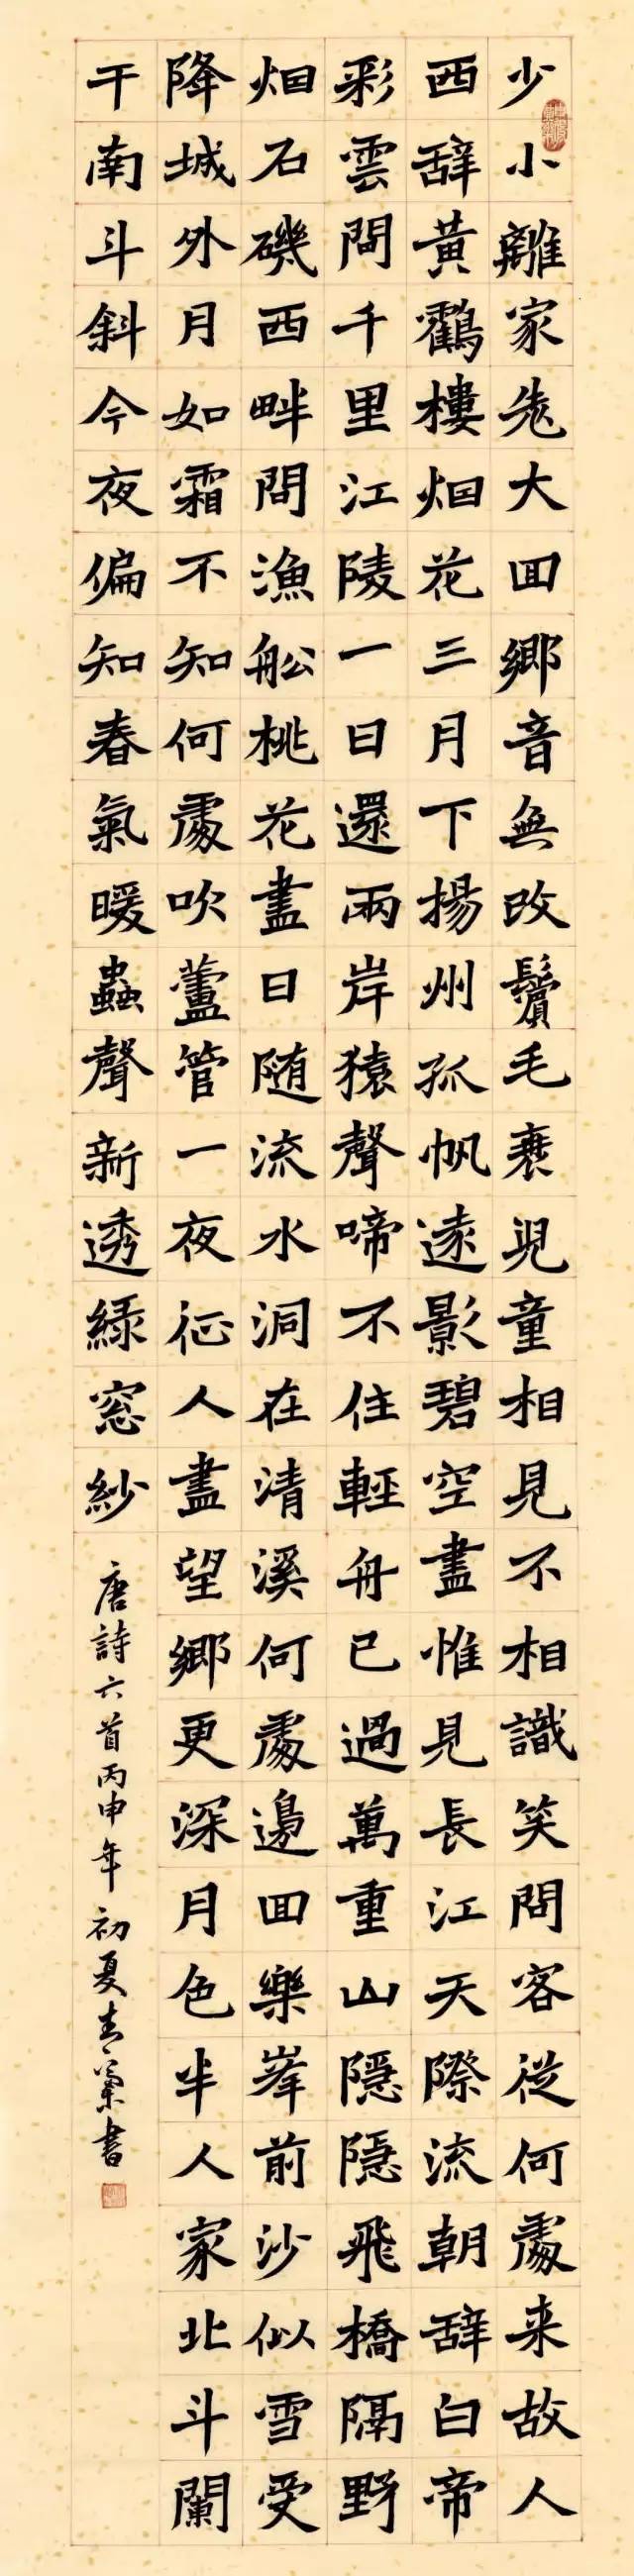 少小離家老大囬鄉音無改鬢毛衰兒童相見不相識笑問客從何處来故人
西辞黃鶴樓烟花三月下揚州孤帆遠影碧空盡惟見長江天際流朝辞白帝
彩雲間千里江陵一日還兩岸猿聲啼不住輕舟已過萬重山隱隱飛橋隔野
烟石磯西畔問漁船桃花盡日随流水洞在清溪何處邊囬樂峯前沙似雪受
降城外月如霜不知何處吹蘆管一夜征人盡望鄉更深月色半人家北斗闌
干南斗斜今夜偏知春氣暖蟲聲新透綠窓紗
唐詩六首丙申年初夏書